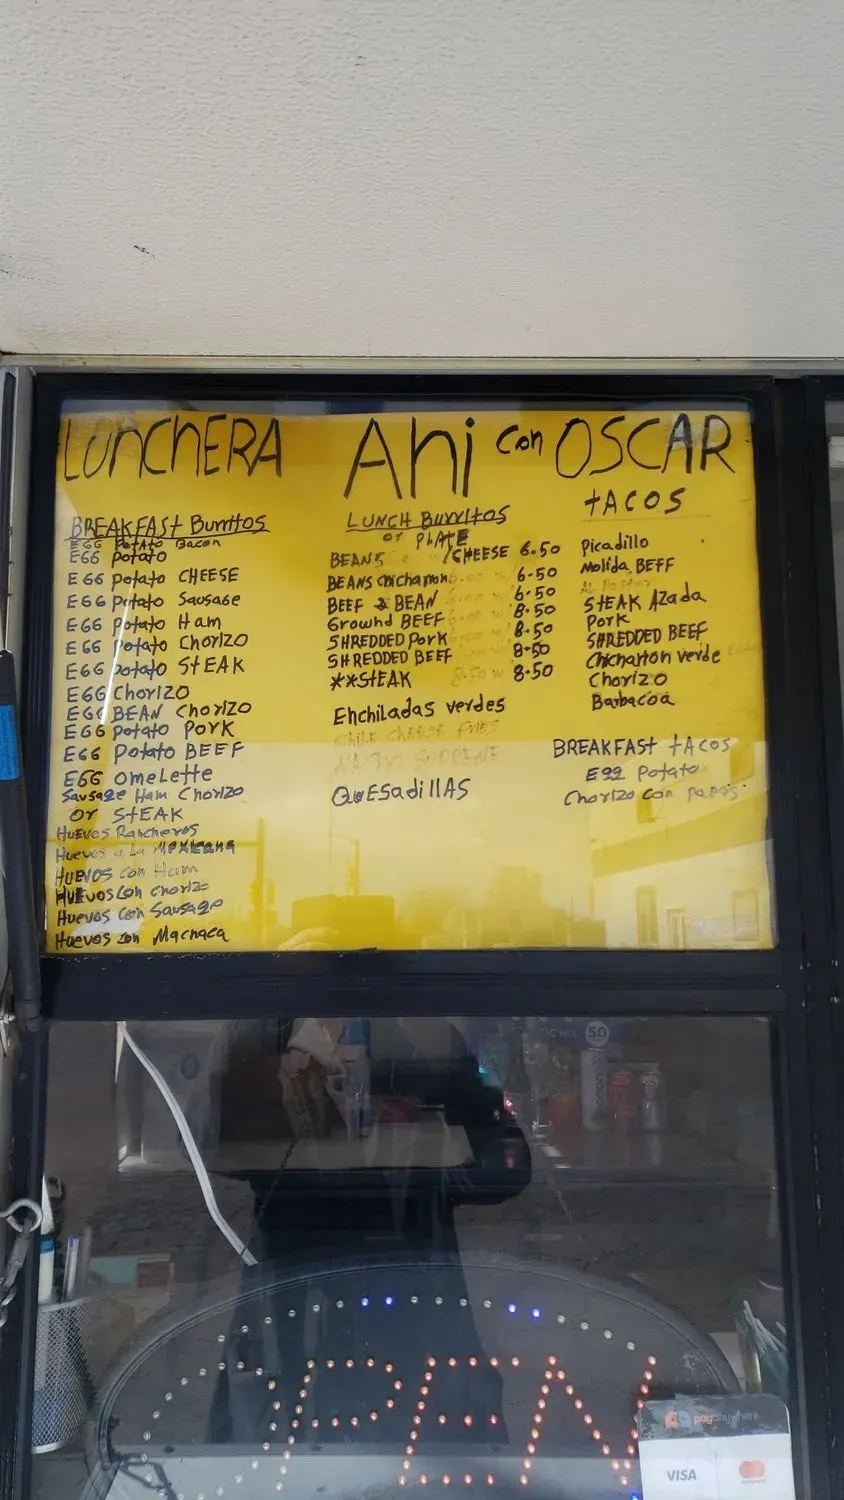 LUNCHERA Ahi con OSCAR
BREAKFASt Burritos
EGG Potato Bacon
EGG Potato
EGG potato CHEESE
EGG potato Sausage
EGG potato Ham
EGG potato Chorizo
EGG potato StEAK
EGG Chorizo
EGG BEAN Chorizo
EGG potato Pork
EGG Potato BEEF
EGG OmeLette
Sausage Ham Chorizo
or StEAK
Huevos Rancheros
Huevos a La Mexicana
Huevos con Ham
Huevos Con Chorizo
Huevos Con Sausage
Huevos con Machaca
LUNCH Burritos
or PLAtE
BEANS /CHEESE 6.50
BEANS chicharron 6.50
BEEF & BEAN 6.50
Ground BEEF 8.50
SHREDDED Pork 8.50
SHREDDED BEEF 8.50
**StEAK 8.50 w 8.50
Enchiladas verdes
CHILE CHEESE FRIES
NACHO SUPREME
QuESadillAS
tACOS
Picadillo
Molida BEFF
AL Pastor
StEAK Azada
Pork
SHREDDED BEEF
Chicharron verde
Chorizo
Barbacoa
BREAKFASt tACOS
Egg Potato
Chorizo con papas
50
OPEN
payanywhere
VISA